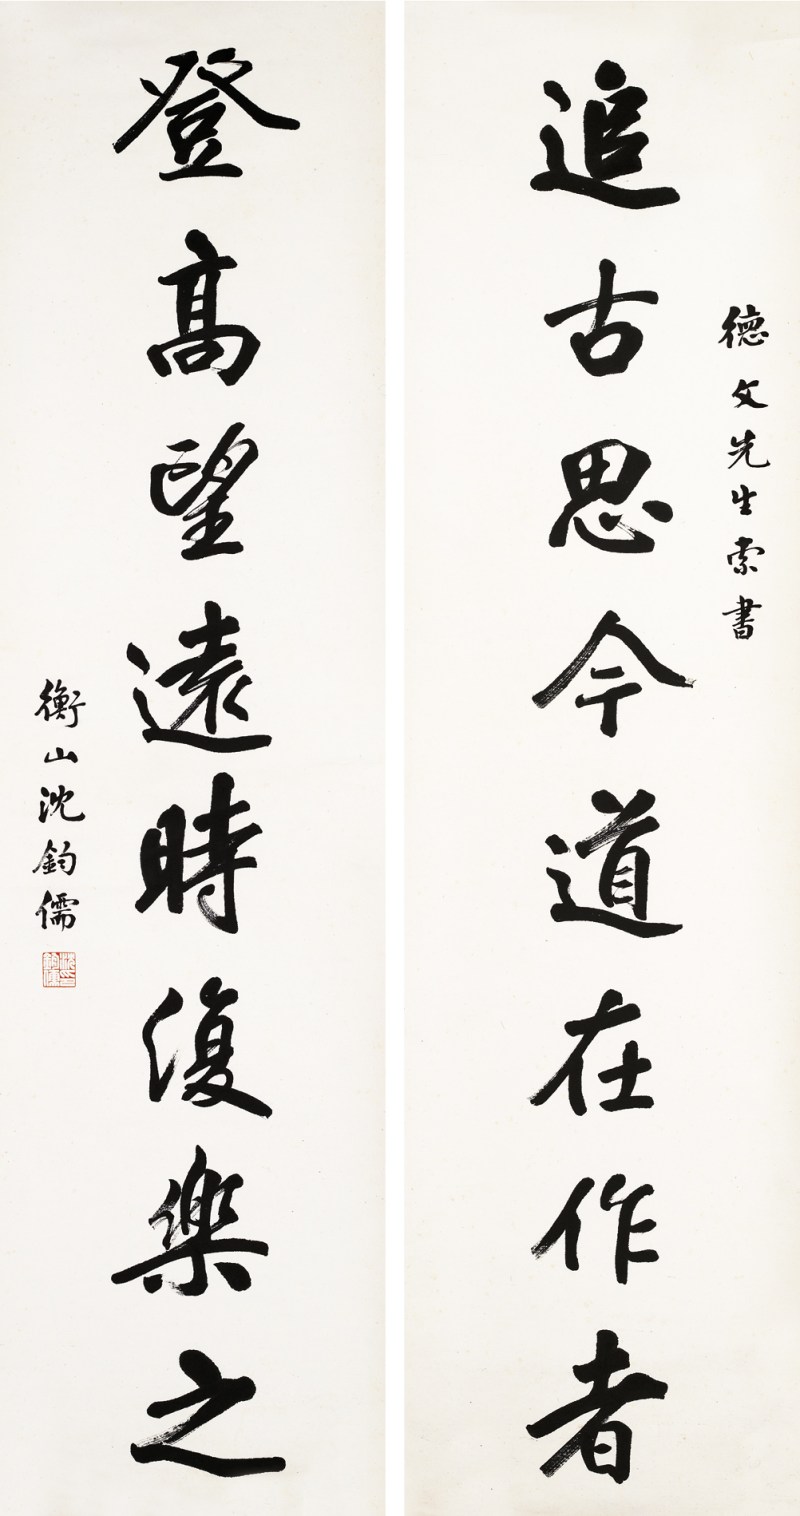 德文先生索書
追古思今道在作者
登高望遠時復樂之
衡山沈鈞儒